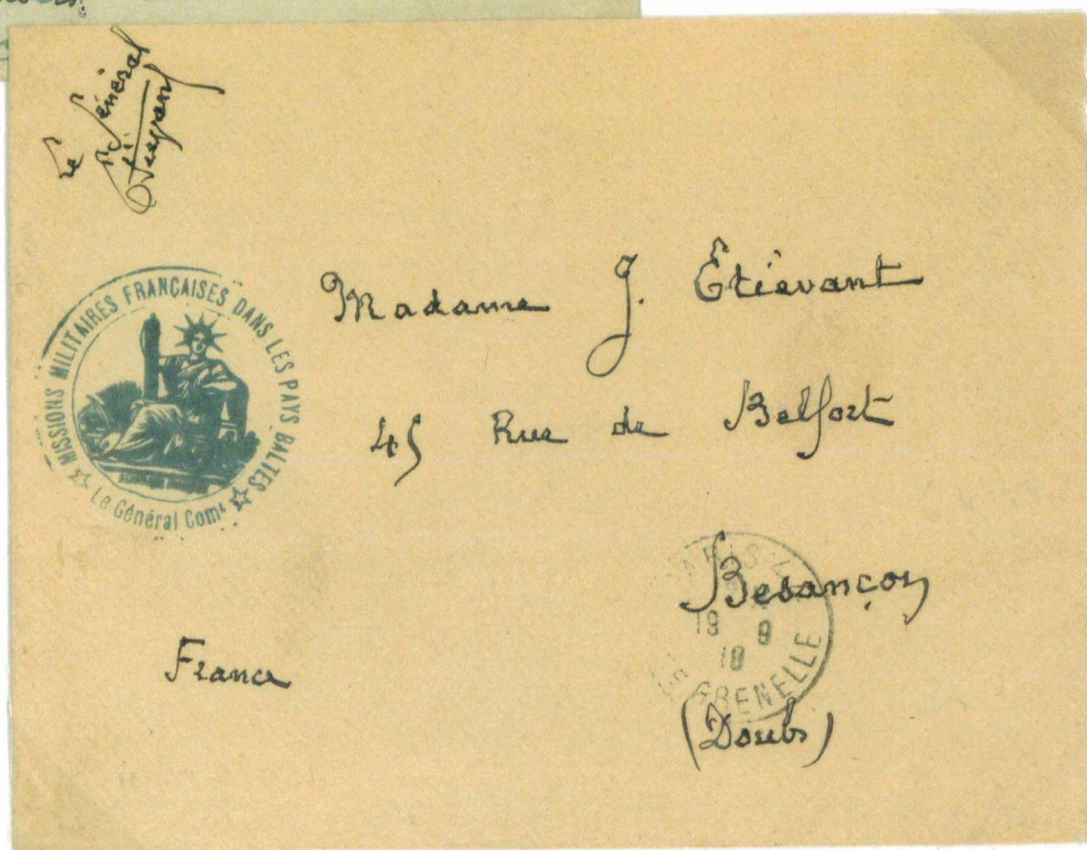 Le
Général
MISSIONS MILITAIRES FRANÇAISES DANS LES PAYS BALTES
Le Général Comᵗ
Madame J. Etiévant
45 Rue de Belfort
Besançon
(Doubs)
France
PARIS
19 9
19
GRENELLE